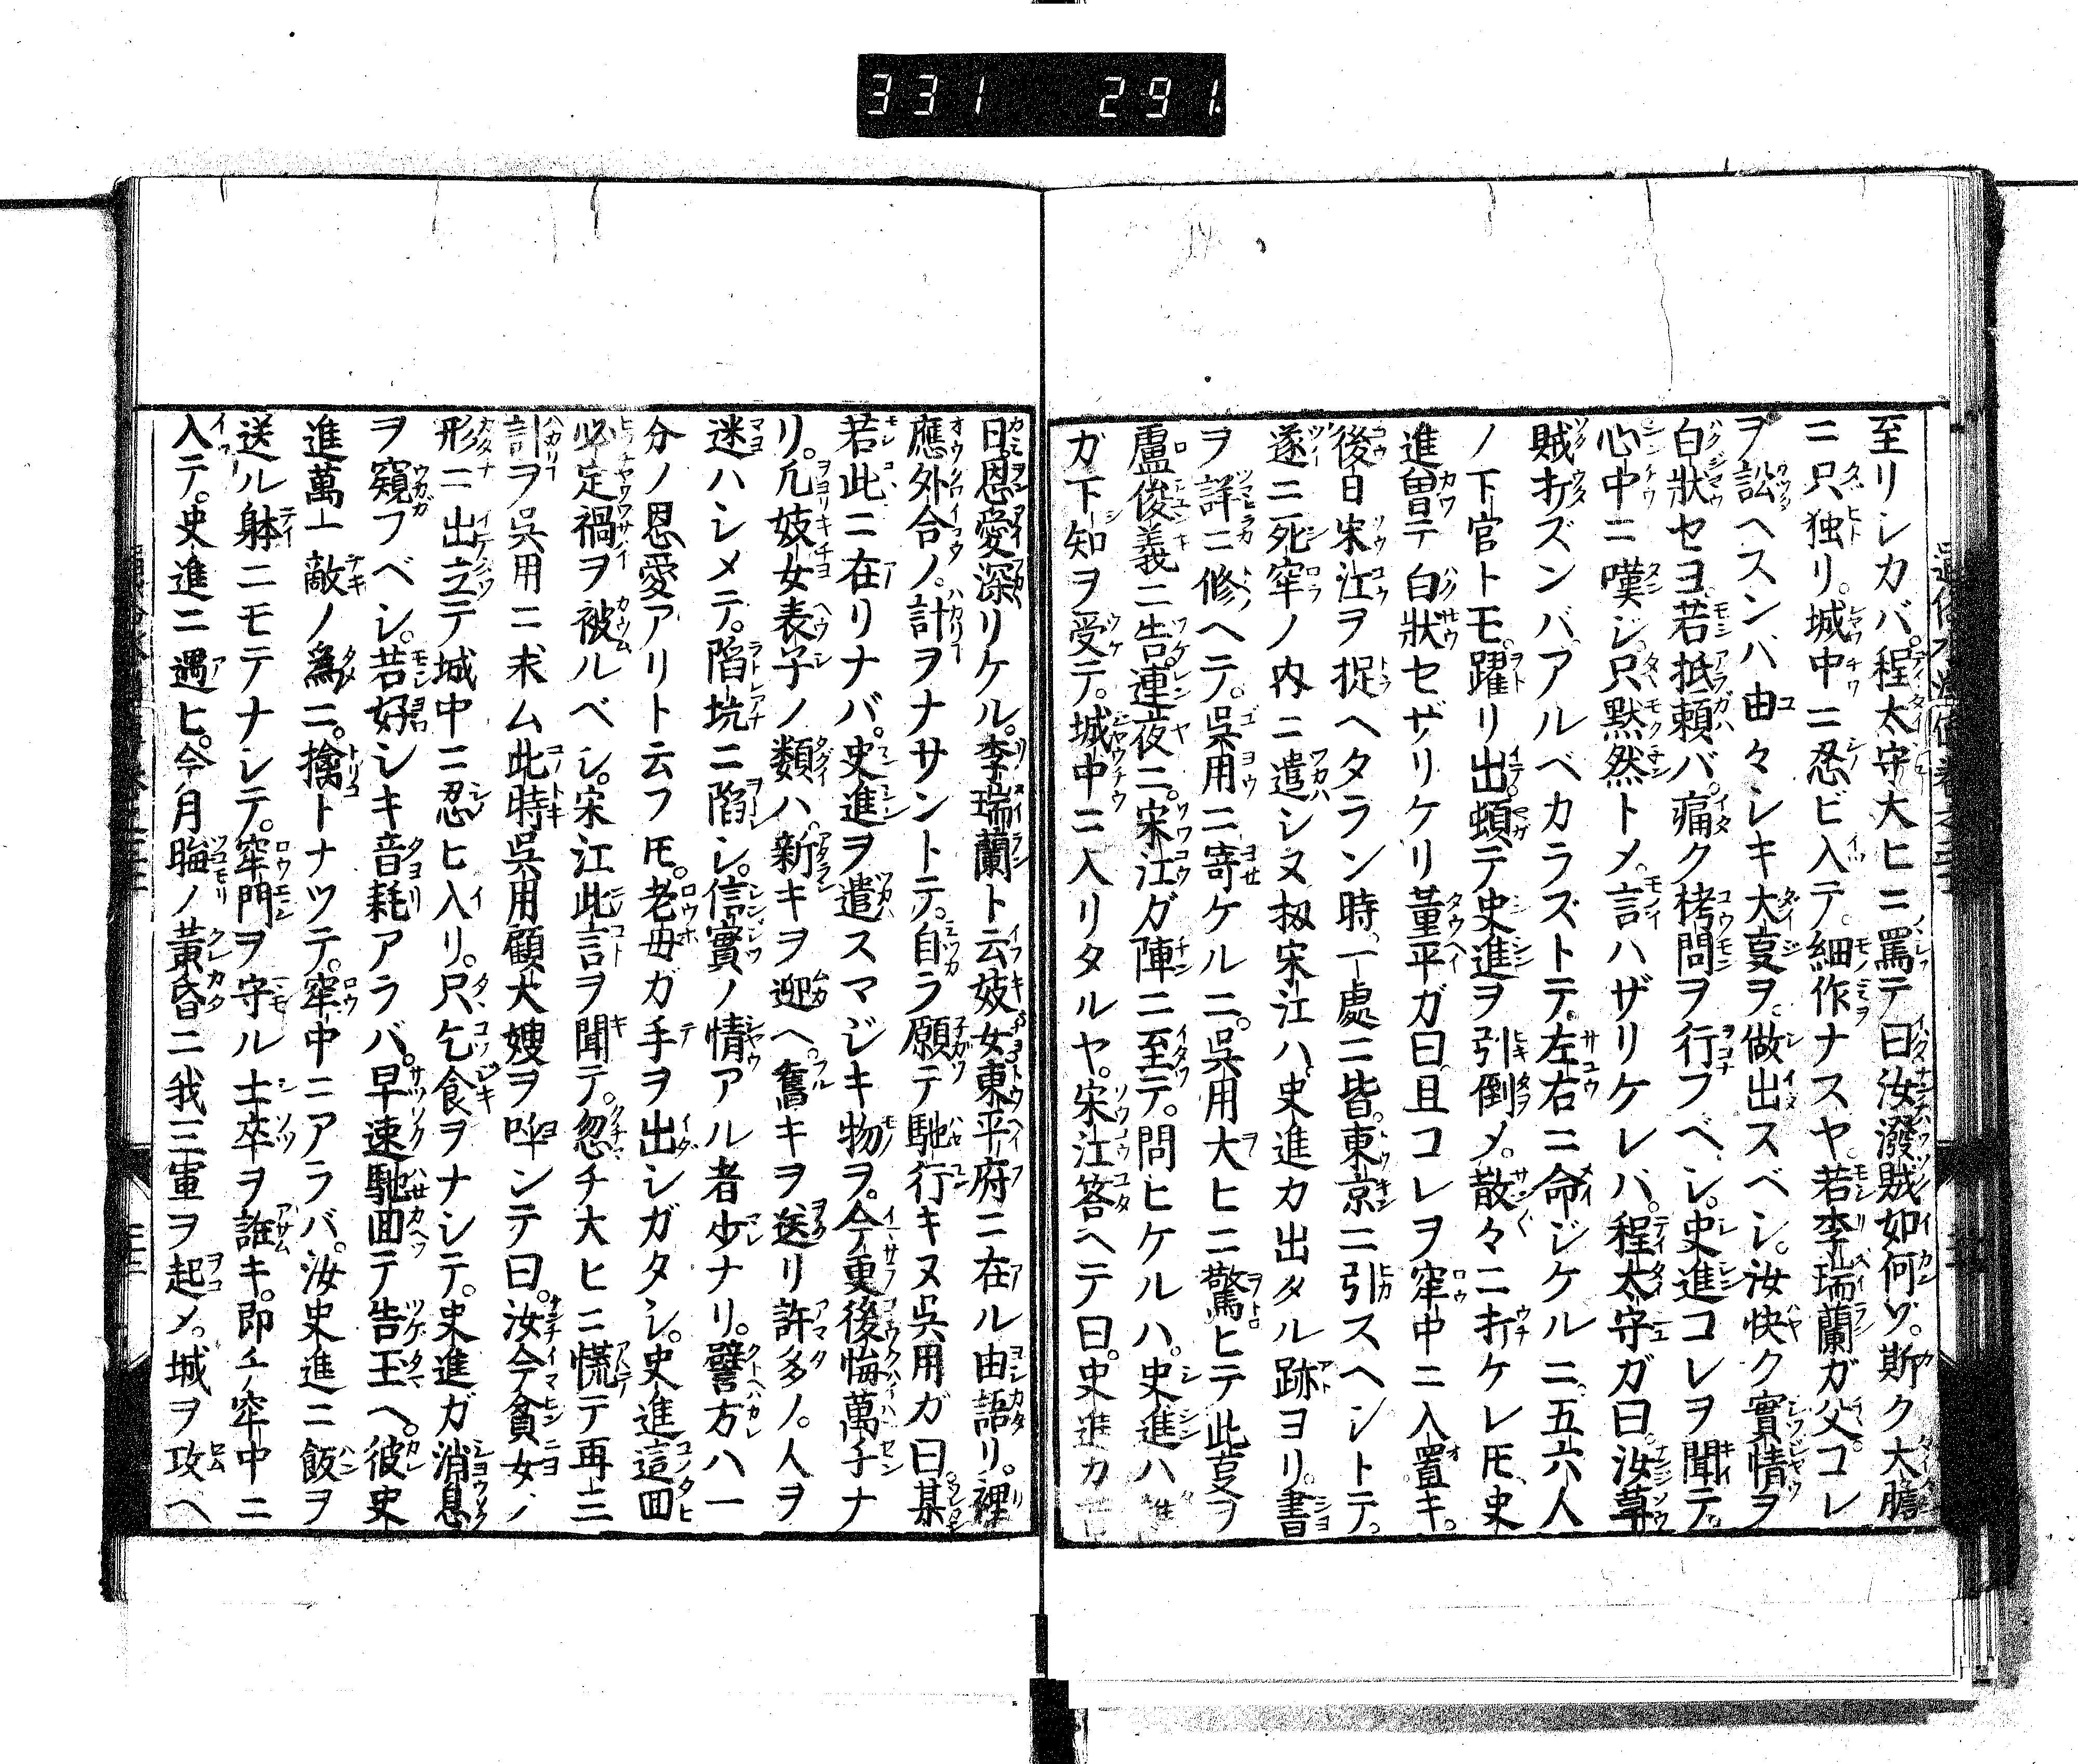 331 291
至リシカバ。程太守大ヒニ罵テ曰汝潑賊如何ゾ。斯ク大膽
ニ只独リ。城中ニ忍ビ入テ。細作ナスヤ。若李瑞蘭ガ父。コレ
ヲ訟ヘスンバ由々シキ大事ヲ。做出スベシ。汝快ク實情ヲ
白狀セヨ。若抵頼バ。痛ク拷問ヲ行フベシ。史進コレヲ聞テ。
心中ニ嘆ジ。只黙然トメ。言ハザリケレバ。程太守ガ曰。汝草
賊打ズンバ。アルベカラズトテ。左右ニ命ジケルニ。五六人
ノ下官トモ。躍リ出。頓テ史進ヲ引倒メ。散々ニ打ケレ𪜈、史
進曽テ白狀セザリケリ董平ガ曰。且コレヲ牢中ニ入置キ。
後日宋江ヲ捉ヘタラン時、一處ニ皆。東京ニ引スヘシトテ。
遂ニ死牢ノ内ニ遣シヌ扨宋江ハ、史進カ出タル跡ヨリ。書
ヲ詳ニ修ヘテ。呉用ニ寄ケルニ。呉用大ヒニ驚ヒテ此事ヲ
盧俊義ニ告。連夜ニ。宋江ガ陣ニ至テ。問ヒケルハ。史進ハ
ガ下知ヲ受テ。城中ニ入リタルヤ。宋江答ヘテ曰。史進カ
日。恩愛深リケル。李瑞蘭ト云妓女東平府ニ在ル由語リ。裡
應外合ノ。計ヲナサントテ。自ラ願テ馳行キヌ呉用ガ曰。某
若此ニ在リナバ。史進ヲ遣スマジキ物ヲ。今更後悔萬千ナ
リ。凢妓女表子ノ類ハ。新キヲ迎ヘ。舊キヲ送リ許多ノ。人ヲ
迷ハシメテ。陷坑ニ陷シ。信實ノ情アル者少ナリ。譬方ハ一
分ノ恩愛アリト云フ𪜈。老母ガ手ヲ出シガタシ。史進這回
必定禍ヲ被ルベシ。宋江此言ヲ聞テ。忽チ大ヒニ慌テ再三
計ヲ呉用ニ求ム此時呉用顧大嫂ヲ呼ンテ曰。汝今貧女ノ
形ニ出立テ城中ニ忍ヒ入リ。只乞食ヲナシテ。史進ガ消息
ヲ窺フベシ。若好シキ音耗アラバ。早速馳回テ告玉ヘ。彼史
進萬一敵ノ為ニ。擒トナツテ。牢中ニアラバ。汝史進ニ飯ヲ
送ル躰ニモテナシテ。牢門ヲ守ル士卒ヲ誰キ。即チ牢中ニ
入テ。史進ニ遇ヒ。今月晦ノ黃昏ニ我三軍ヲ起メ。城ヲ攻ヘ